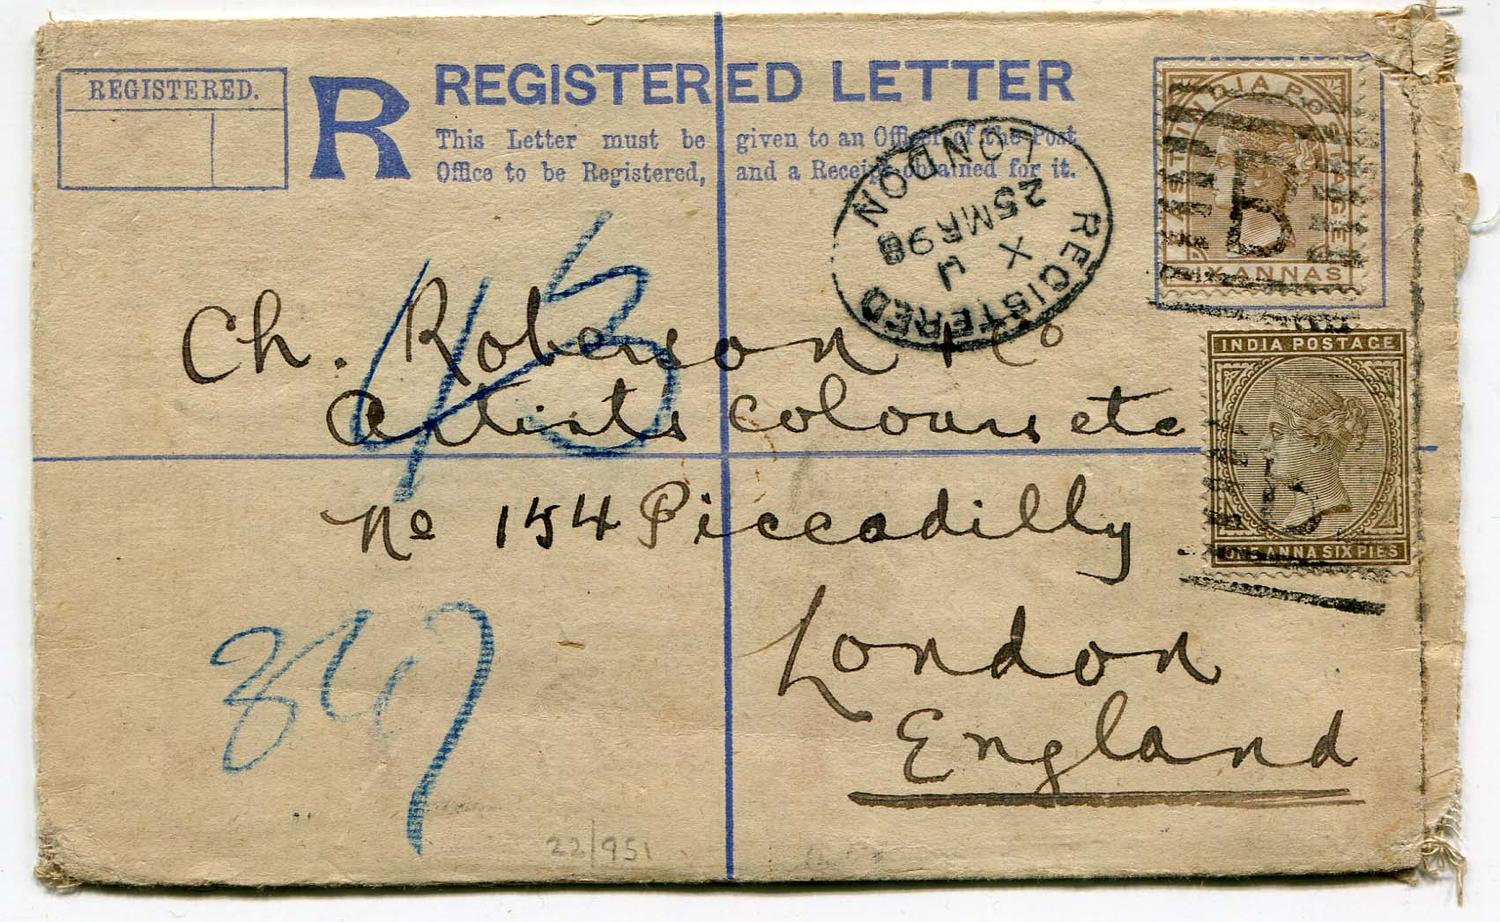 REGISTERED.
R
REGISTERED LETTER
This Letter must be given to an Officer of the Post
Office to be Registered, and a Receipt obtained for it.
REGISTERED
LONDON
25 MR 98
X
INDIA POSTAGE
SIX ANNAS
INDIA POSTAGE
ONE ANNA SIX PIES
Ch. Roberson & Co
Artists colours etc
No 154 Piccadilly
London
England
45
367
22/951